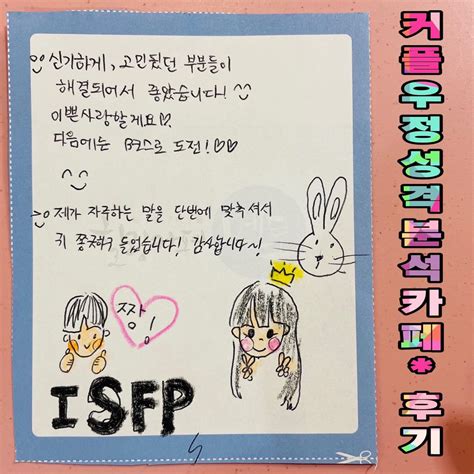 신기하게, 고민됐던 부분들이
해결되어서 좋았습니다!
이쁜사랑할게요♡
다음에는 B코스로 도전!♡♡
제가 자주하는 말을 단번에 맞추셔서
귀 쫑긋하구 들었습니다! 감사합니다~!
짱!
ISFP
커플우정성격분석카페* 후기